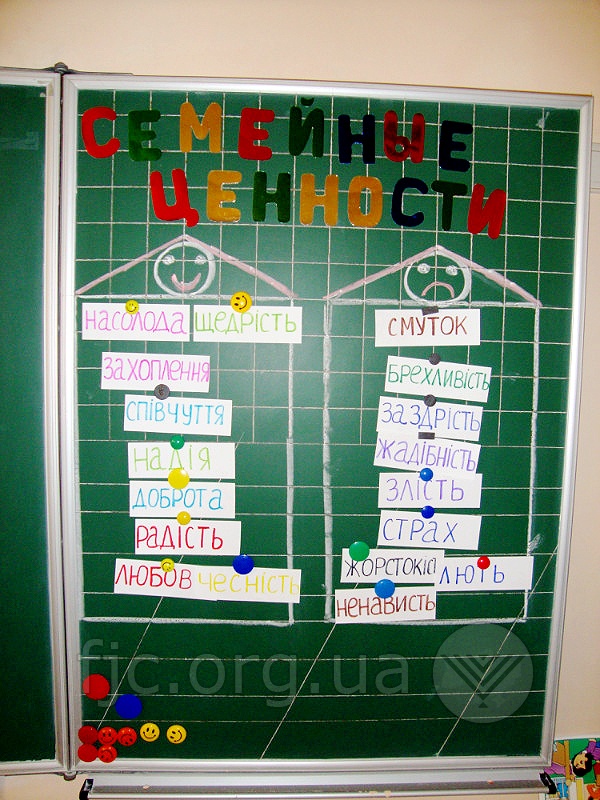 СЕМЕЙНЫЕ
ЦЕННОСТИ
насолода
щедрість
захоплення
співчуття
надія
доброта
радість
любов
чесність
смуток
брехливість
заздрість
жадібність
злість
страх
жорстокіс
лють
ненависть
fjc.org.ua